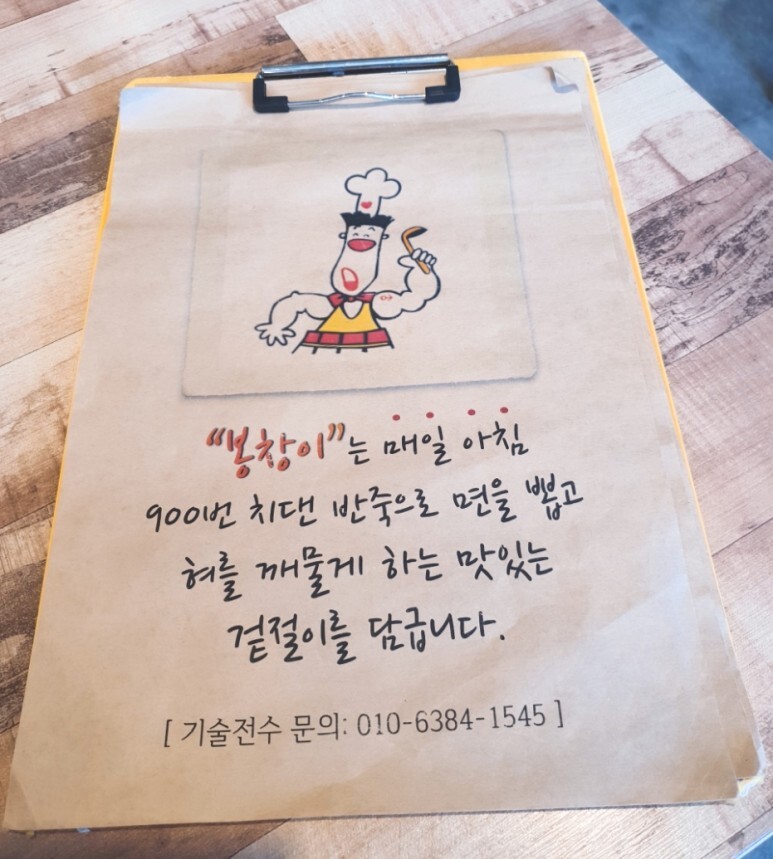 “봉창이”는 매일 아침
900번 치댄 반죽으로 면을 뽑고
혀를 깨물게 하는 맛있는
겉절이를 담급니다.
[ 기술전수 문의: 010-6384-1545 ]